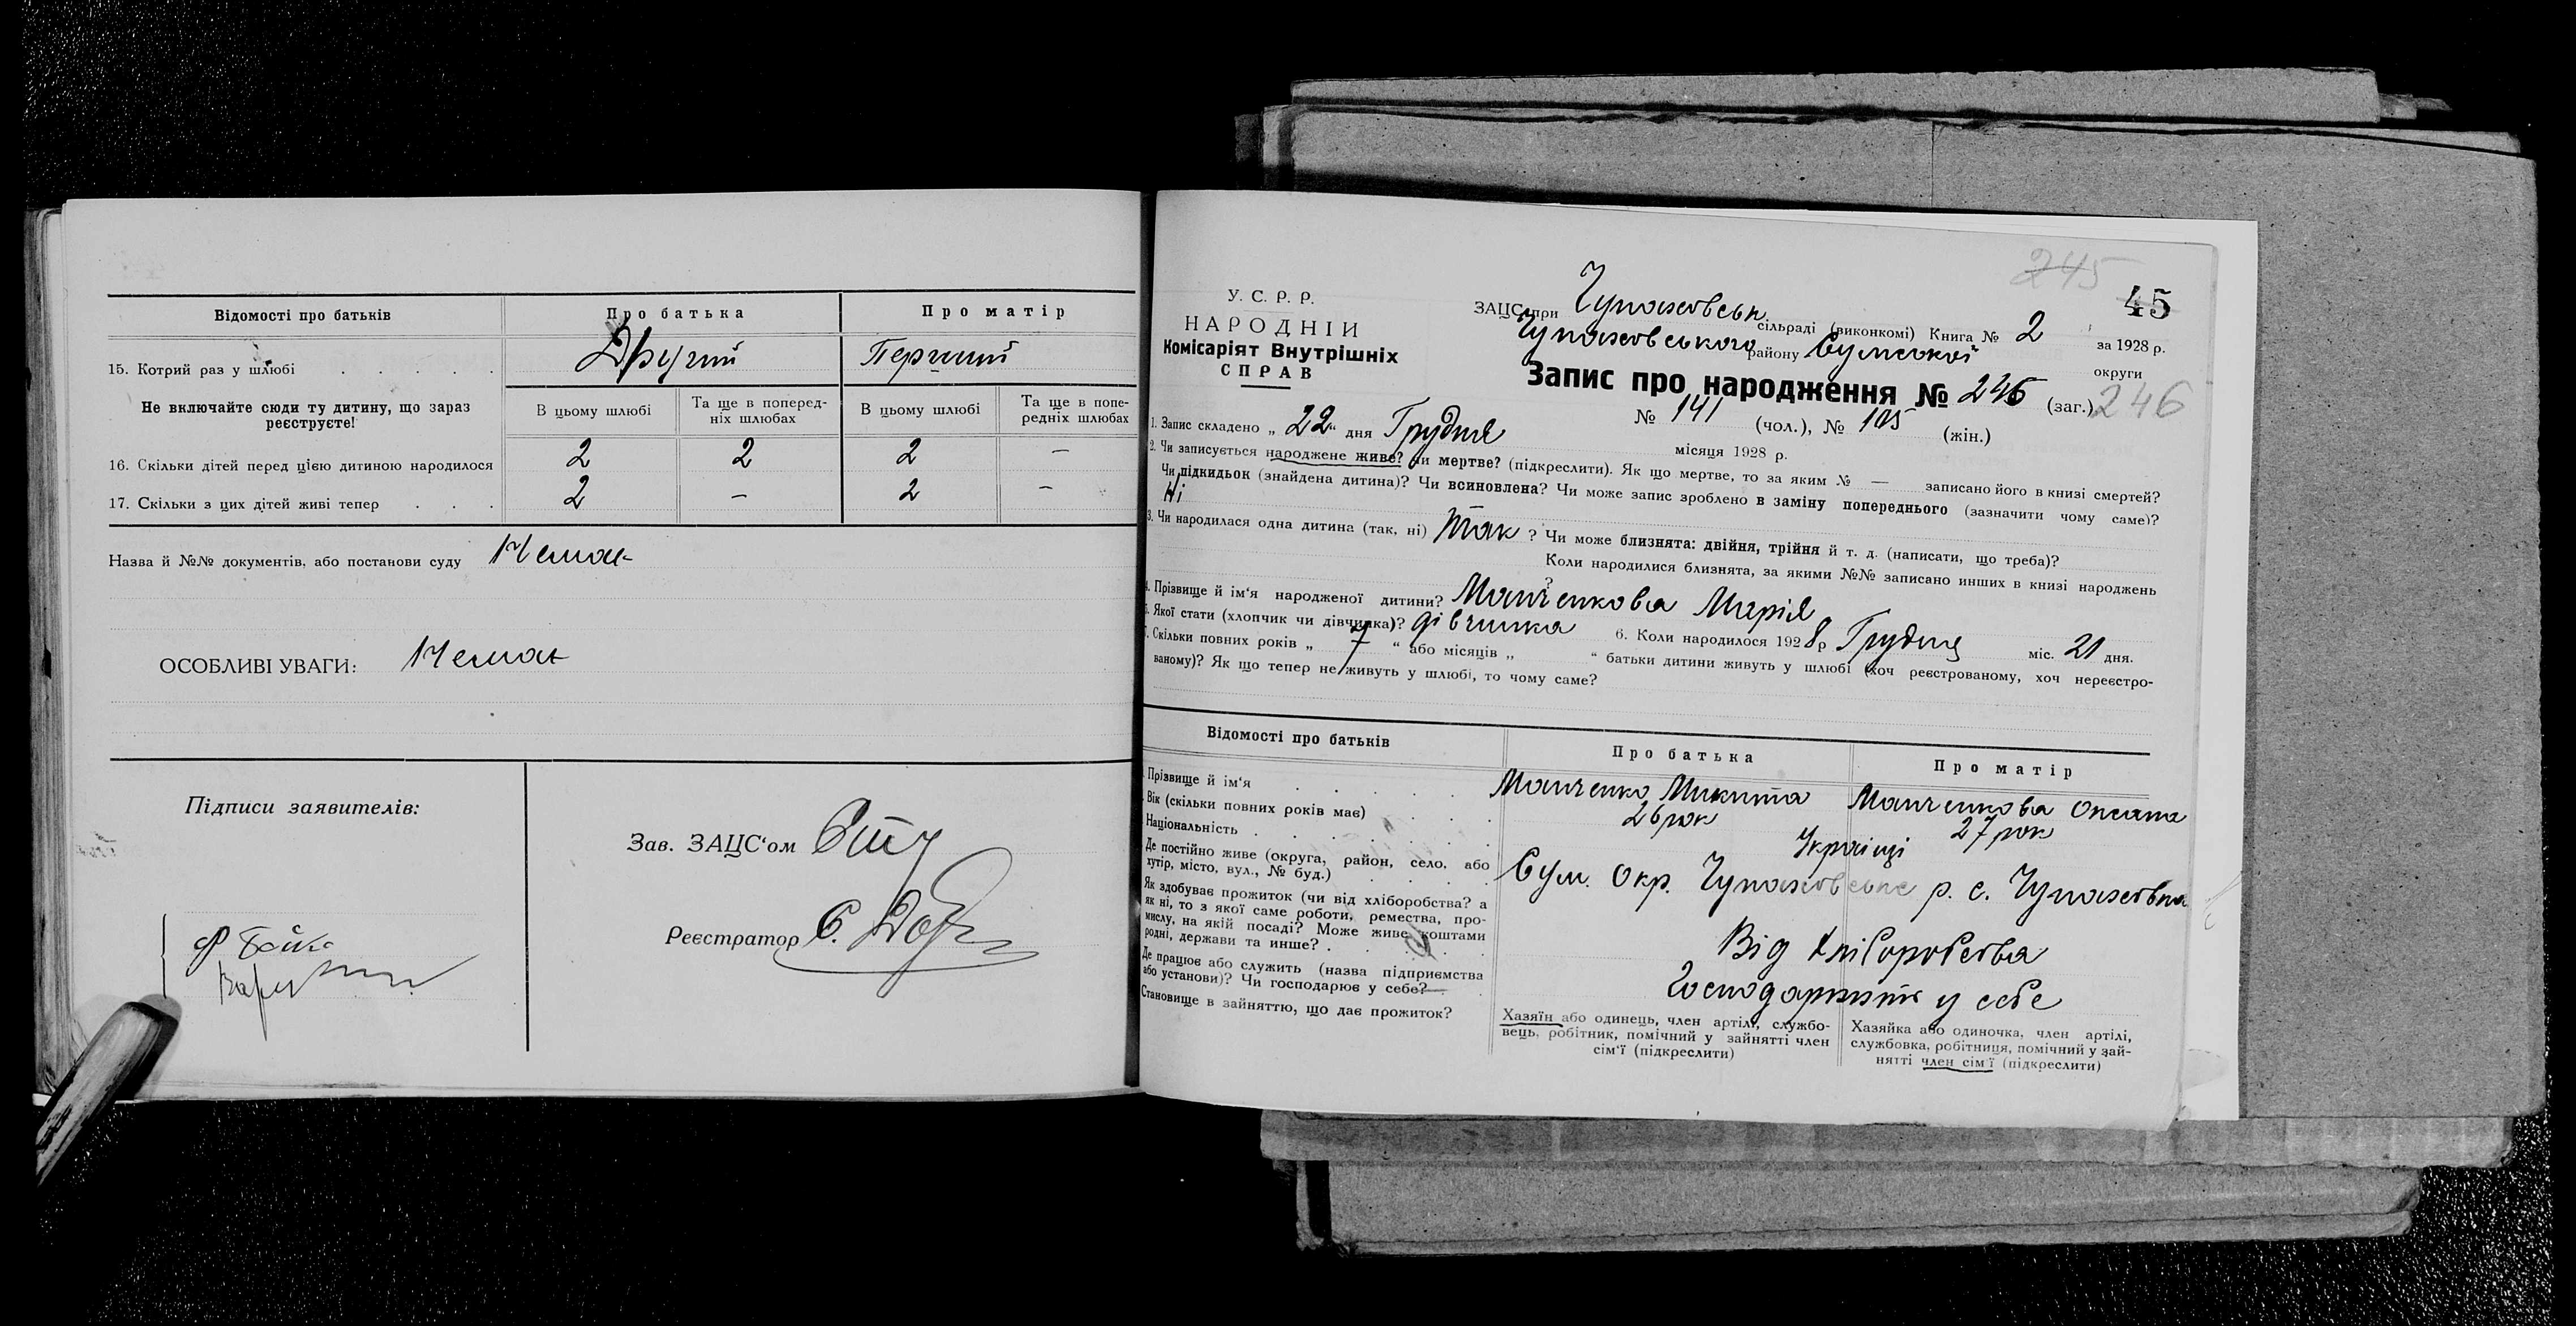 Відомості про батьків
Про батька
Про матір
15. Котрий раз у шлюбі
Другий
Перший
Не включайте сюди ту дитину, що зараз
реєструєте!
В цьому шлюбі
Та ще в поперед-
ніх шлюбах
В цьому шлюбі
Та ще в попе-
редніх шлюбах
16. Скільки дітей перед цією дитиною народилося
2 2 2 —
17. Скільки з цих дітей живі тепер
2 — 2 —
Назва й №№ документів, або постанови суду Немає
ОСОБЛИВІ УВАГИ: Немає
Підписи заявителів:
Зав. ЗАЦС'ом
Реєстратор
245
45
У. С. Р. Р.
НАРОДНІЙ
Комісаріят Внутрішніх
СПРАВ
ЗАЦС при Чупахівськ. сільраді (виконкомі) Книга № 2 за 1928 р.
Чупахівського району Сумської округи
Запис про народження № 246 (заг.) 246
№ 141 (чол.), № 105 (жін.)
1. Запис складено „ 22 “ дня Грудня місяця 1928 р.
2. Чи записується народжене живе? чи мертве? (підкреслити). Як що мертве, то за яким № — записано його в книзі смертей?
Чи підкидьок (знайдена дитина)? Чи всиновлена? Чи може запис зроблено в заміну попереднього (зазначити чому саме)?
Ні
3. Чи народилася одна дитина (так, ні) Так ? Чи може близнята: двійня, трійня й т. д. (написати, що треба)?
Коли народилися близнята, за якими №№ записано инших в книзі народжень
?
4. Прізвище й ім'я народженої дитини? Манченкова Марія
5. Якої стати (хлопчик чи дівчинка)? дівчинка 6. Коли народилося 1928 р Грудня міс. 21 дня.
7. Скільки повних років „ 7 “ або місяців „ “ батьки дитини живуть у шлюбі (хоч реєстрованому, хоч нереєстро-
ваному)? Як що тепер не живуть у шлюбі, то чому саме?
Відомості про батьків
Про батька
Про матір
Прізвище й ім'я
Манченко Микита
Манченкова Оксана
Вік (скільки повних років має)
26 рок
27 рок
Національність
Україці
Де постійно живе (округа, район, село, або
хутір, місто, вул., № буд.)
Сум. Окр. Чупахівське р. с. Чупахівка
Як здобуває прожиток (чи від хліборобства? а
як ні, то з якої саме роботи, ремества, про-
мислу, на якій посаді? Може живе коштами
родні, держави та инше?
Від хліборобства
Де працює або служить (назва підприємства
або установи)? Чи господарює у себе?
Господарюють у себе
Становище в зайняттю, що дає прожиток?
Хазяїн або одинець, член артілі, службо-
вець, робітник, помічний у зайнятті член
сім'ї (підкреслити)
Хазяйка або одиночка, член артілі,
службовка, робітниця, помічний у зай-
нятті член сім'ї (підкреслити)